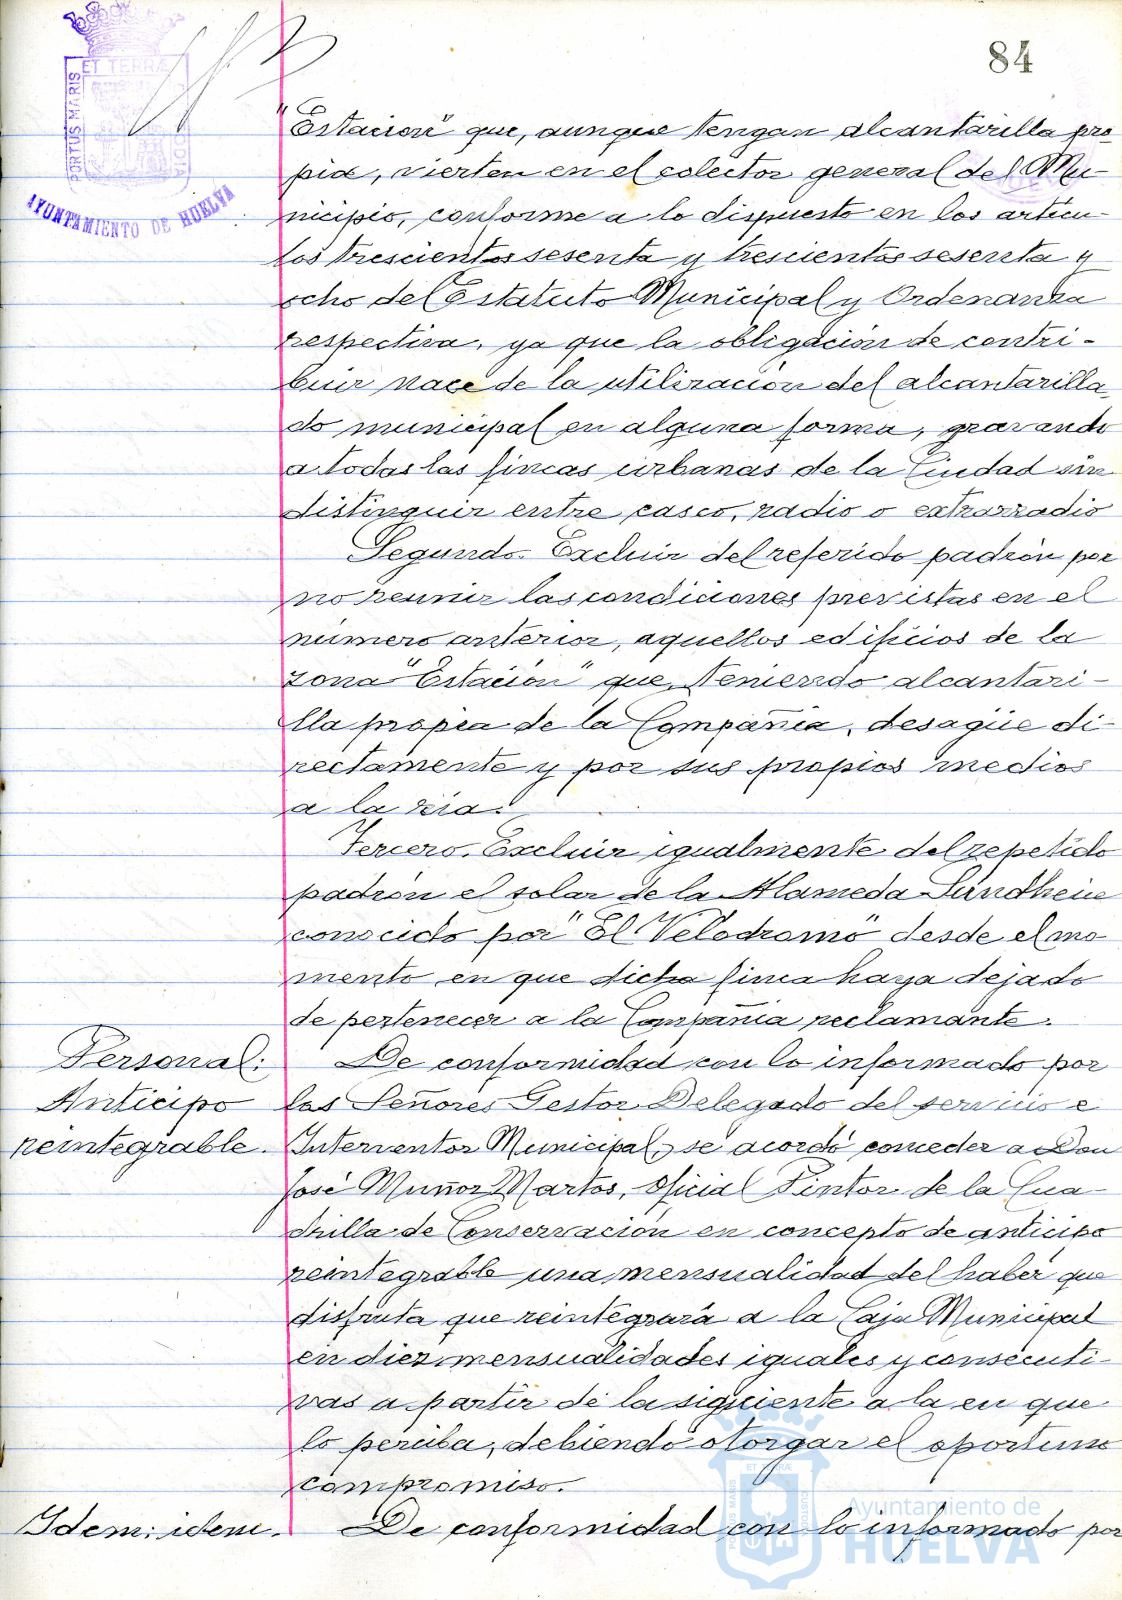 84
PORTUS MARIS
ET TERRÆ
AYUNTAMIENTO DE HUELVA
"Estación" que, aunque tengan alcantarilla pro-
pia, vierten en el colector general del Mu-
nicipio, conforme a lo dispuesto en los artícu-
los trescientos sesenta y trescientos sesenta y
ocho del Estatuto Municipal y Ordenanza
respectiva, ya que la obligación de contri-
buir nace de la utilización del alcantarilla-
do municipal en alguna forma, gravando
a todas las fincas urbanas de la Ciudad sin
distinguir entre casco, radio o extrarradio
Segundo. Excluir del referido padrón por
no reunir las condiciones previstas en el
número anterior, aquellos edificios de la
zona "Estación" que, teniendo alcantari-
lla propia de la Compañía, desagüe di-
rectamente y por sus propios medios
a la ría.
Tercero. Excluir igualmente del repetido
padrón el solar de la Alameda Sundheim
conocido por "El Velodromo" desde el mo-
mento en que dicha finca haya dejado
de pertenecer a la Compañía reclamante.
Personal:
Anticipo
reintegrable.
De conformidad con lo informado por
los Señores Gestor Delegado del servicio e
Interventor Municipal, se acordó conceder a Don
José Muñoz Martos, Oficial Pintor de la Cua-
drilla de Conservación en concepto de anticipo
reintegrable una mensualidad del haber que
disfruta que reintegrará a la Caja Municipal
en diez mensualidades iguales y consecuti-
vas a partir de la siguiente a la en que
lo perciba, debiendo otorgar el oportuno
compromiso.
Idem: idem.
De conformidad con lo informado por
Ayuntamiento de
HUELVA